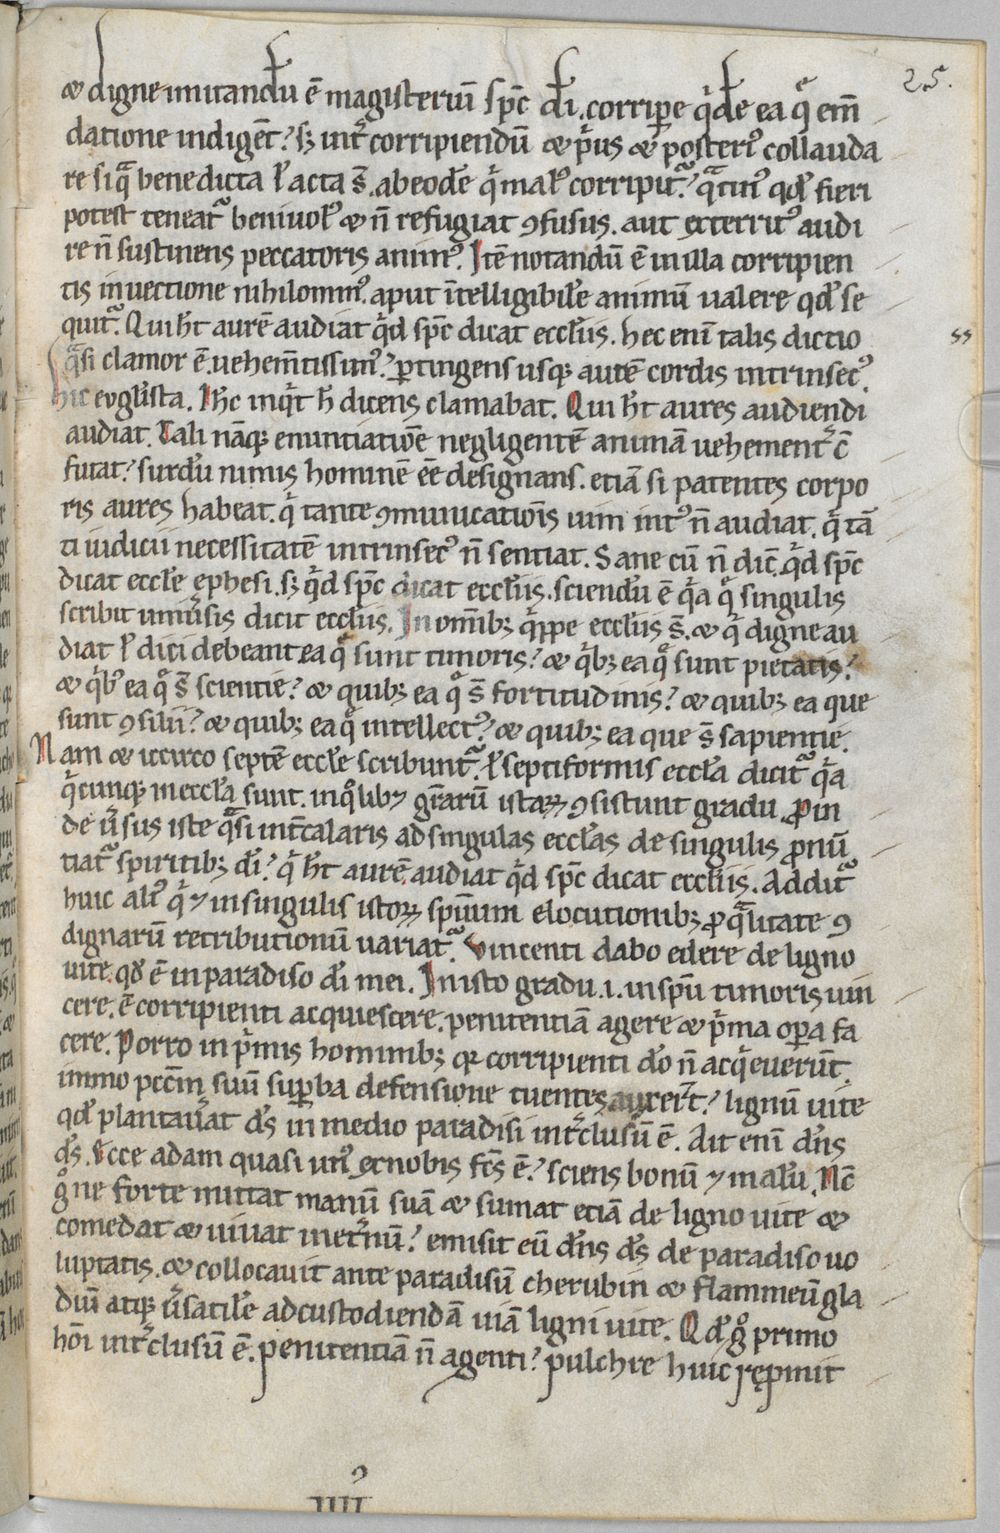 25.
⁊ digne imitandū ē magisteriū spc̄ di̅. corripe̅ q̇de̅ ea q̊ em̅
datione indigēt? sꝫ int̅ corripiendū ⁊ p̅us ⁊ posteriꝰ collauda
re siq̅ benedicta l̅ acta s̅. ab eode̅ q̇ malꝰ corripit᷑? q̅tinꝰ qd̅ fieri
potest teneat᷑ benivolꝰ ⁊ n̅ refugiat ꝯfusus. aut exterritꝰ audi
re n̅ sustinens peccatoris animꝰ. Itē notandū ē in illa corripien
tis invectione nihilominꝰ. aput i̅telligibile̅ animū valere qd̅ se
quit᷑. Qui h̅t aurē audiat q̇d spc̄ dicat eccl̅iis. hec eni̅ talis dictio
q̅si clamor ē. vehem̅tissimꝰ? ꝑtingens usqꝫ aurē cordis intrinsecꝰ.
hic evgl̅ista. Ih̅c inq̇t h̅ dicens clamabat. Qui h̅t aures audiendi
audiat. Tali nāqꝫ enuntiatiōe negligentē animā vehement᷑ c̅
futat? surdū nimis hominē ēe designans. etiā si patentes corpo
ris aures habeat. q̇ tante ꝯmunicatiōis vim intꝰ n̅ audiat. q̇ tā
ti iudicii necessitatē intrinsecꝰ n̅ sentiat. Sane cū n̅ dic̅ q̇d spc̄
dicat eccl̅e ephesi. sꝫ q̇d spc̄ dicat eccl̅iis. sciendū ē q̇a q̊ singulis
scribit univ̅sis dicit eccl̅iis. In omībꝫ q̇ppe eccl̅iis s̅. ⁊ q̇ digne au
diat l̅ dici debeant ea q̊ sunt timoris? ⁊ q̇bꝫ ea q̊ sunt pietatis?
⁊ q̇bꝰ ea q̊ s̅ scientie? ⁊ quibꝫ ea q̊ s̅ fortitudinis? ⁊ quibꝫ ea que
sunt ꝯsilii? ⁊ quibꝫ ea q̊ intellectꝰ? ⁊ quibꝫ ea que s̅ sapientie.
Nam ⁊ iccirco septē eccl̅e scribunt᷑. l̅ septiformis eccl̅a dicit᷑ q̇a
q̇cunqꝫ in eccl̅a sunt. in q̊libꝫ gr̅arū istaꝝ ꝯsistunt gradu. Proin
de v̅sus iste q̅si int̅calaris ad singulas eccl̅as de singulis ꝓnū
tiat᷑ spiritibꝫ di̅? q̇ h̅t aurē audiat q̇d spc̄ dicat eccl̅iis. Addit᷑
huic alt̅ q̇ ⁊ in singulis istoꝝ sp̅uum elocutionibꝫ ꝓ q̅litate ꝯ
dignarū retributionū variat᷑. Vincenti dabo edere de ligno
vite. qd̅ ē in paradiso di̅ mei. In isto gradu .i. in sp̅u timoris vin
cere. ē corripienti acquiescere. penitentiā agere ⁊ p̅ma oꝑa fa
cere. Porro in p̅mis hominibꝫ qꝛ corripienti do̅ n̅ acq̇everūt
immo pccm̅ suū suꝑba defensione tuentes auxer̅t? lignū vite
qd̅ plantav̅at ds̅ in medio paradisi int̅clusū ē. Ait eni̅ dn̅s
ds̅. Ecce adam quasi unꝰ ex nobis fc̅s ē? sciens bonū ⁊ malū. Nc̅
g̊ ne forte mittat manū suā ⁊ sumat etiā de ligno vite ⁊
comedat ⁊ vivat in et̅nū? emisit eū dn̅s ds̅ de paradiso vo
luptatis. ⁊ collocavit ante paradisū cherubin ⁊ flammeū gla
diū atqꝫ v̅satile̅ ad custodiendā viā ligni vite. Qd̅ g̊ primo
ho̅i int̅clusū ē. penitentiā n̅ agenti? pulchre huic rep̅mit
IIII